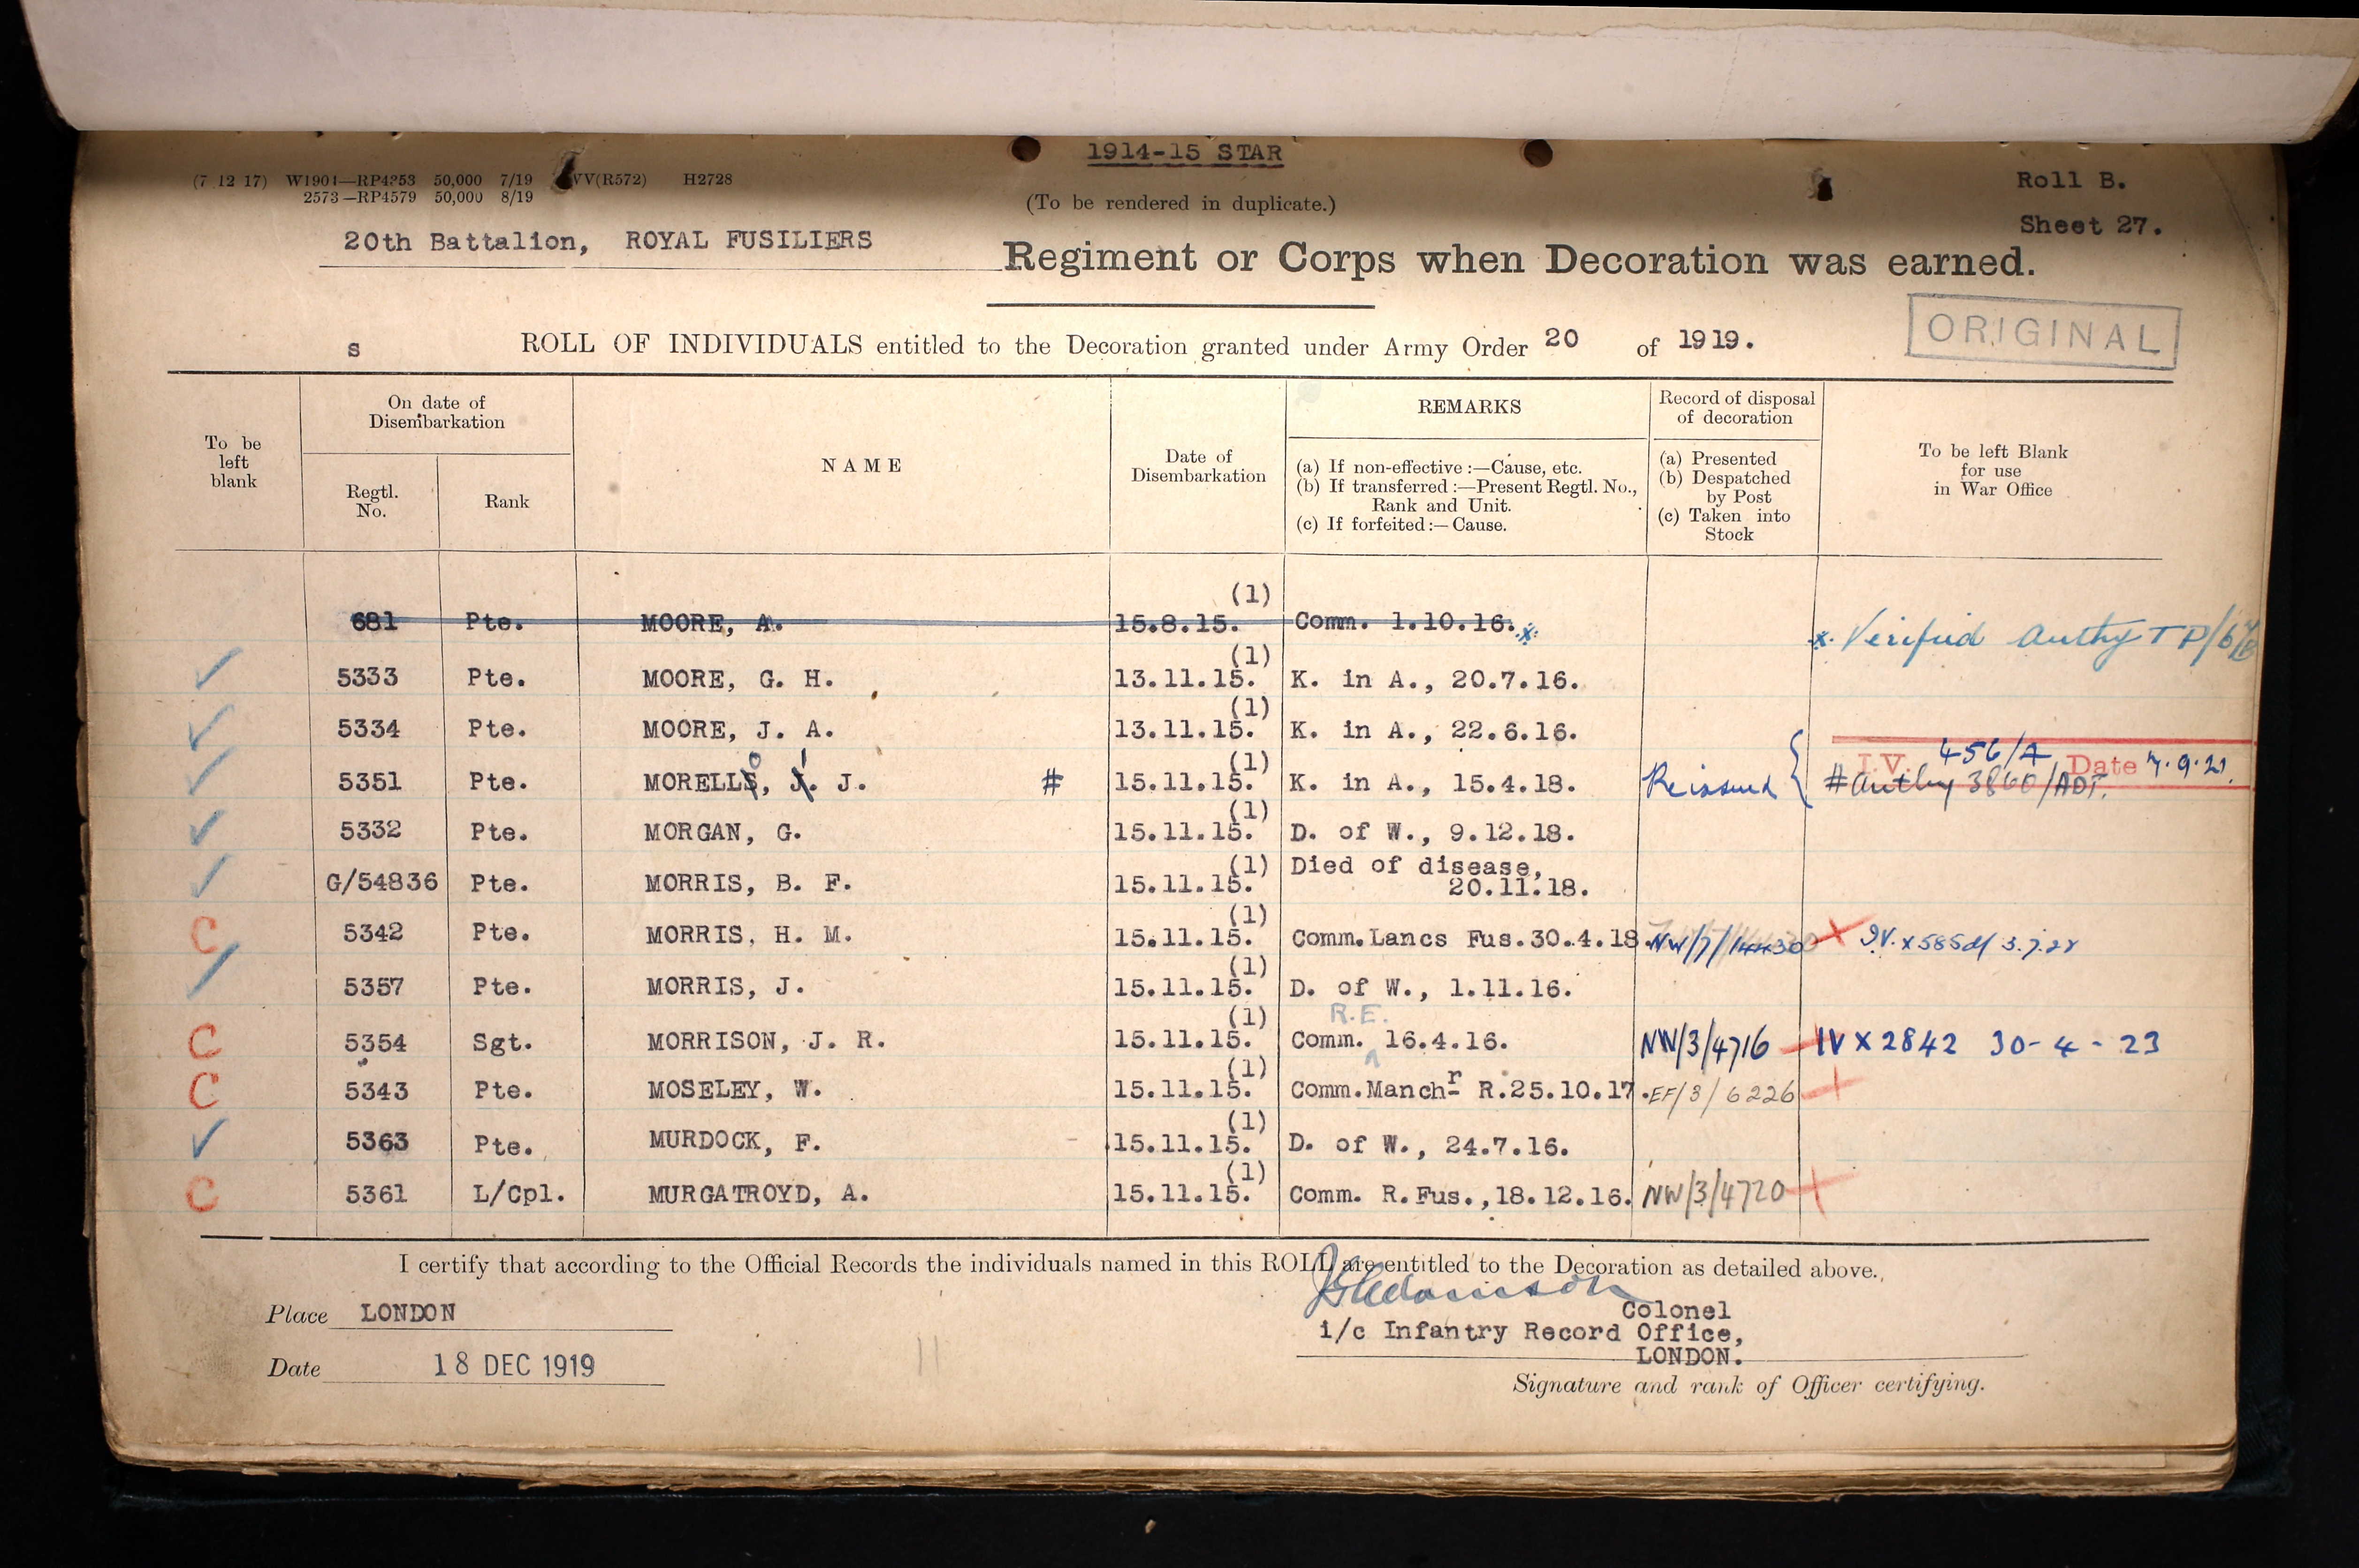 1914-15 STAR
(7 12 17) W1901—RP4353 50,000 7/19 VV(R572) H2728
2573—RP4579 50,000 8/19
(To be rendered in duplicate.)
Roll B.
Sheet 27.
20th Battalion, ROYAL FUSILIERS Regiment or Corps when Decoration was earned.
ORIGINAL
S
ROLL OF INDIVIDUALS entitled to the Decoration granted under Army Order 20 of 1919.
To be left blank
On date of Disembarkation
Regtl. No.
Rank
NAME
Date of Disembarkation
REMARKS
(a) If non-effective :—Cause, etc.
(b) If transferred :—Present Regtl. No., Rank and Unit.
(c) If forfeited :—Cause.
Record of disposal of decoration
(a) Presented
(b) Despatched by Post
(c) Taken into Stock
To be left Blank for use in War Office
681 Pte. MOORE, A. 15.8.15. (1) Comm. 1.10.16. x. x. Verified Authy TP/6/
✓ 5333 Pte. MOORE, G. H. 13.11.15. (1) K. in A., 20.7.16.
✓ 5334 Pte. MOORE, J. A. 13.11.15. (1) K. in A., 22.6.16.
✓ 5351 Pte. MORELLS, J. J. # 15.11.15. (1) K. in A., 15.4.18. Reissued { I.V. 456/A Date 7.9.21.
# Authy 3860/ADT.
✓ 5332 Pte. MORGAN, G. 15.11.15. (1) D. of W., 9.12.18.
✓ G/54836 Pte. MORRIS, B. F. 15.11.15. (1) Died of disease, 20.11.18.
C 5342 Pte. MORRIS, H. M. 15.11.15. (1) Comm. Lancs Fus. 30.4.18. NW/7/14430 I.V. x 585
/ 5357 Pte. MORRIS, J. 15.11.15. (1) D. of W., 1.11.16.
C 5354 Sgt. MORRISON, J. R. 15.11.15. (1) Comm. R.E. 16.4.16. NW/3/4716 IV X 2842 30-4-23
C 5343 Pte. MOSELEY, W. 15.11.15. (1) Comm. Manchr R. 25.10.17. EF/3/6226
✓ 5363 Pte. MURDOCK, F. 15.11.15. (1) D. of W., 24.7.16.
C 5361 L/Cpl. MURGATROYD, A. 15.11.15. (1) Comm. R. Fus., 18.12.16. NW/3/4720
I certify that according to the Official Records the individuals named in this ROLL are entitled to the Decoration as detailed above.
Place LONDON
Colonel
i/c Infantry Record Office,
LONDON.
Date 18 DEC 1919
11
Signature and rank of Officer certifying.